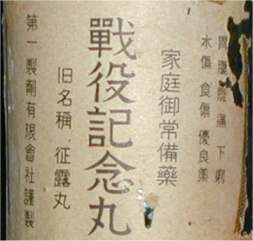 胃腸疼痛 下痢
水傷 食傷 優良薬
家庭御常備藥
戰役記念丸
旧名稱 征露丸
第一製劑有限會社謹製